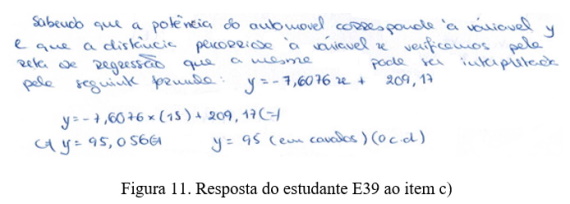 Sabendo que a potência do automovel corresponde à váriavel y
e que a distância percorrida à váriavel x verificamos pela
reta de regressão que a mesma pode ser interpretada
pela seguinte formula: y = -7,6076 x + 209,17
y = -7,6076 × (15) + 209,17 (=)
(=) y = 95,056 (=) y = 95 (em cavalos) (0 c.d)
Figura 11. Resposta do estudante E39 ao item c)